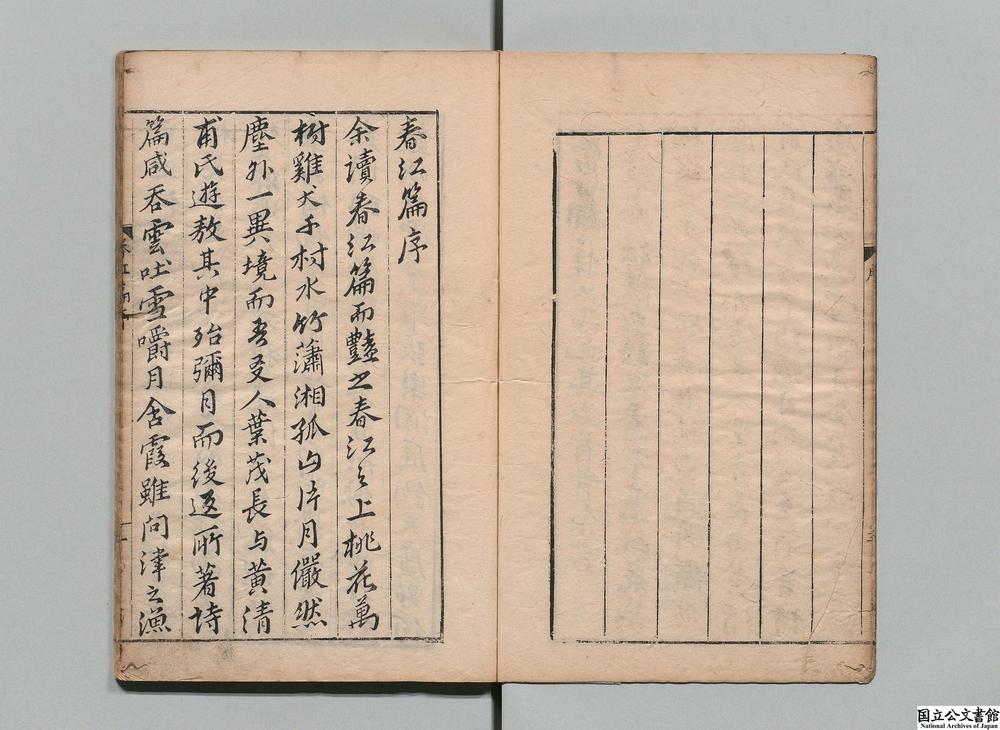 序
春江篇序
余讀春江篇而艷之春江之上桃花萬
樹雞犬千村水竹瀟湘孤山片月儼然
塵外一異境而吾友人葉茂長与黄清
甫氏遊敖其中殆彌月而後返所著詩
篇咸吞雲吐雪嚼月含霞雖问津之漁
國立公文書館
National Archives of Japan